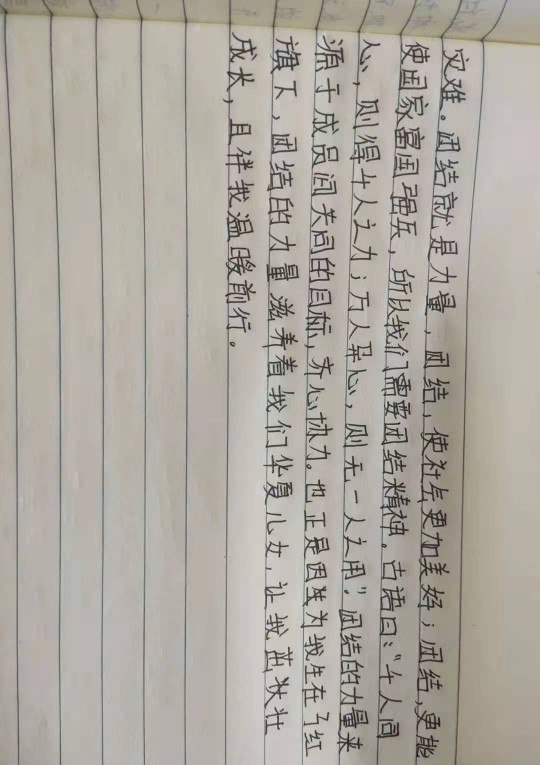 灾难。团结就是力量，团结，使社会更加美好；团结，更能
使国家富国强兵，所以我们需要团结精神。古语曰："千人同
心，则得千人之力；万人异心，则无一人之用"团结的力量来
源于成员间共同的目标，齐心协力。也正是因为我生在了红
旗下，团结的力量滋养着我们华夏儿女，让我茁壮
成长，且伴我温暖前行。